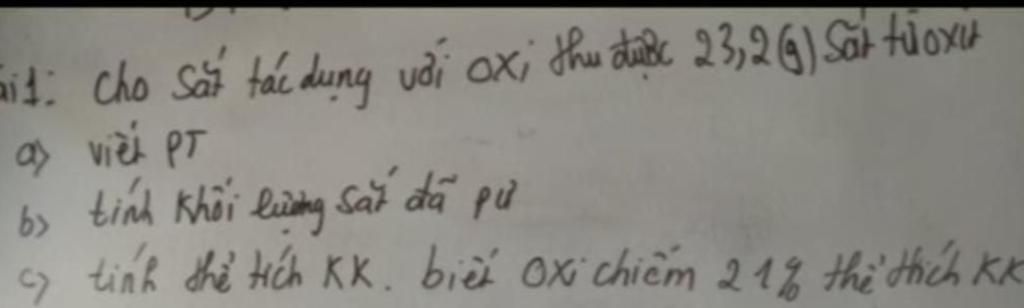 ài 1: Cho Sắt tác dụng với oxi thu được 23,2(g) Sắt từ oxit
a) viết PT
b) tính khối lượng sắt đã pư
c) tính thể tích KK. biết Oxi chiếm 21% thể thích KK